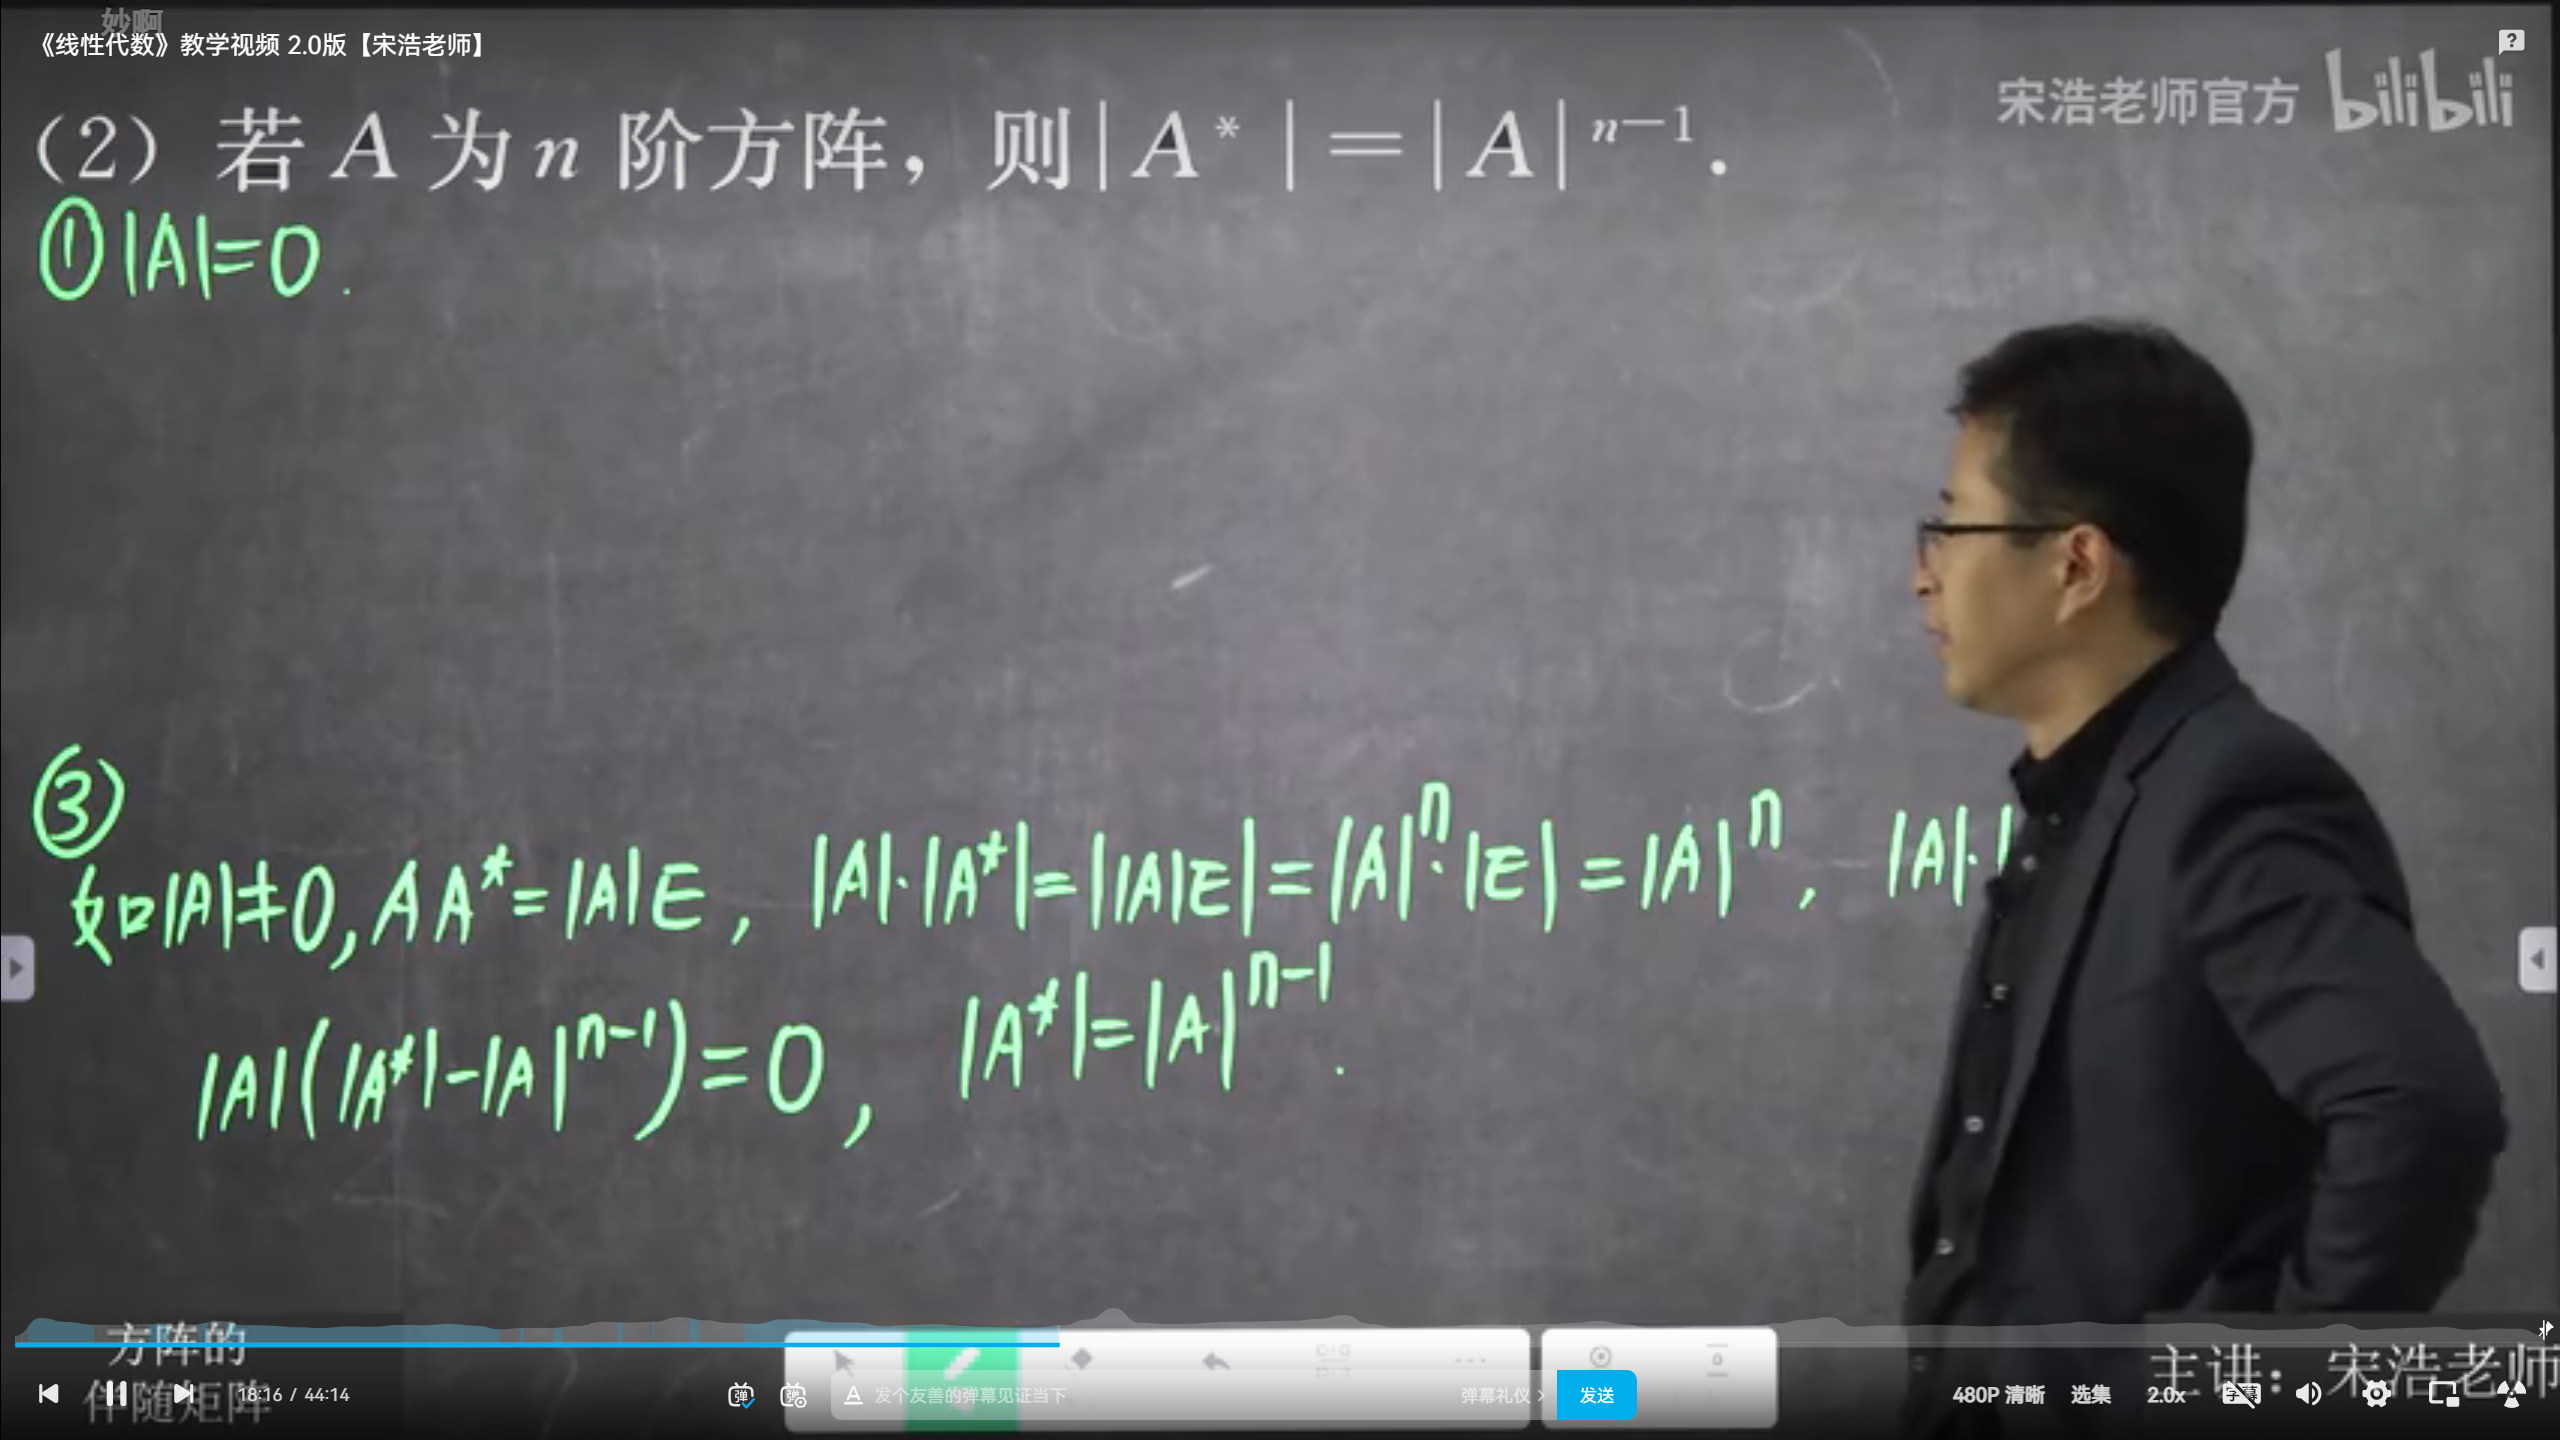 妙啊
《线性代数》教学视频 2.0版【宋浩老师】
宋浩老师官方 bilibili
（2）若 A 为 n 阶方阵，则|A*|=|A|ⁿ⁻¹.
①|A|=0.
③
如|A|≠0, AA*=|A|E, |A|·|A*|=||A|E|=|A|ⁿ·|E|=|A|ⁿ, |A|·|
|A|(|A*|-|A|ⁿ⁻¹)=0, |A*|=|A|ⁿ⁻¹.
方阵的
伴随矩阵
主讲：宋浩老师
18:16 / 44:14
弹
弹
A 发个友善的弹幕见证当下
弹幕礼仪 >
发送
480P 清晰
选集
2.0x
字幕